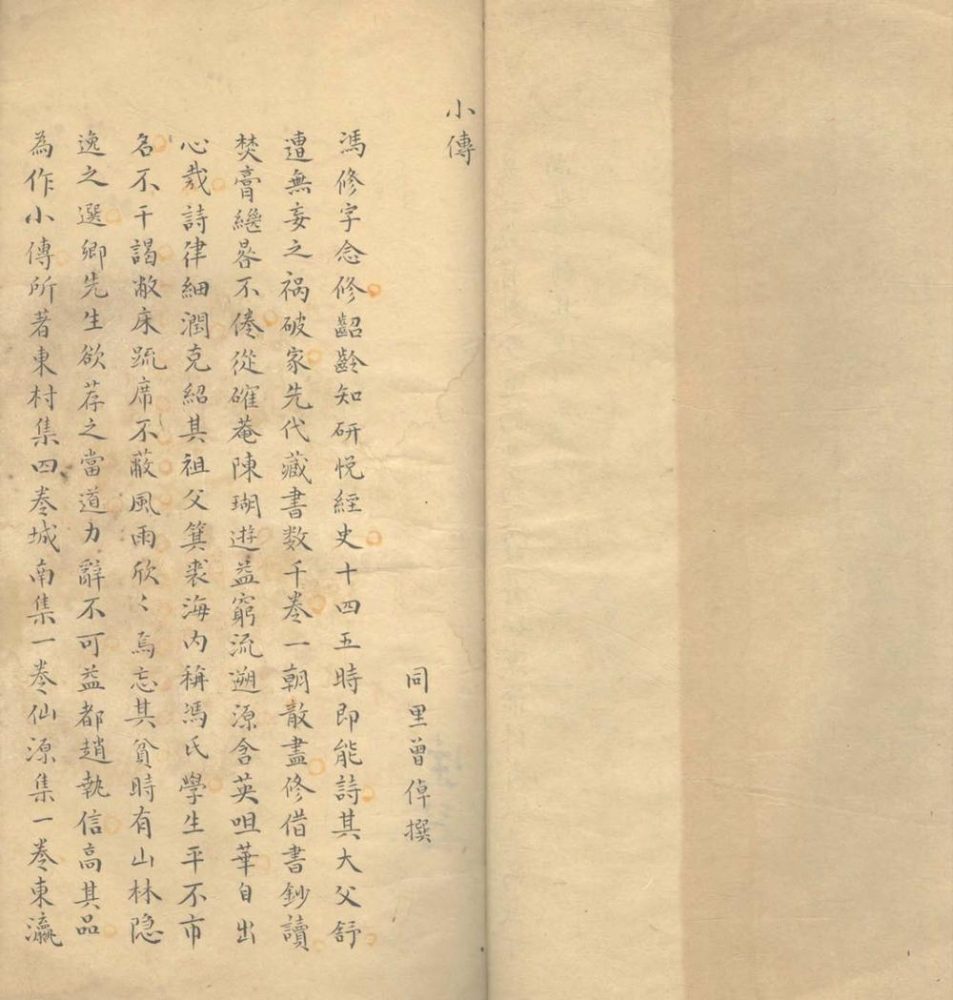 小傳
同里曾倬撰
馮修字念修齠齡知研悅經史十四五時即能詩其大父舒
遭無妄之禍破家先代藏書数千卷一朝散盡修借書鈔讀
焚膏繼晷不倦從確菴陳瑚遊益窮流遡源含英咀華自出
心裁詩律細潤克紹其祖父箕裘海內稱馮氏學生平不市
名不干謁敝床疏席不蔽風雨欣〻焉忘其貧時有山林隐
逸之選鄉先生欲荐之當道力辭不可益都趙執信高其品
為作小傳所著東村集四卷城南集一卷仙源集一卷東瀛